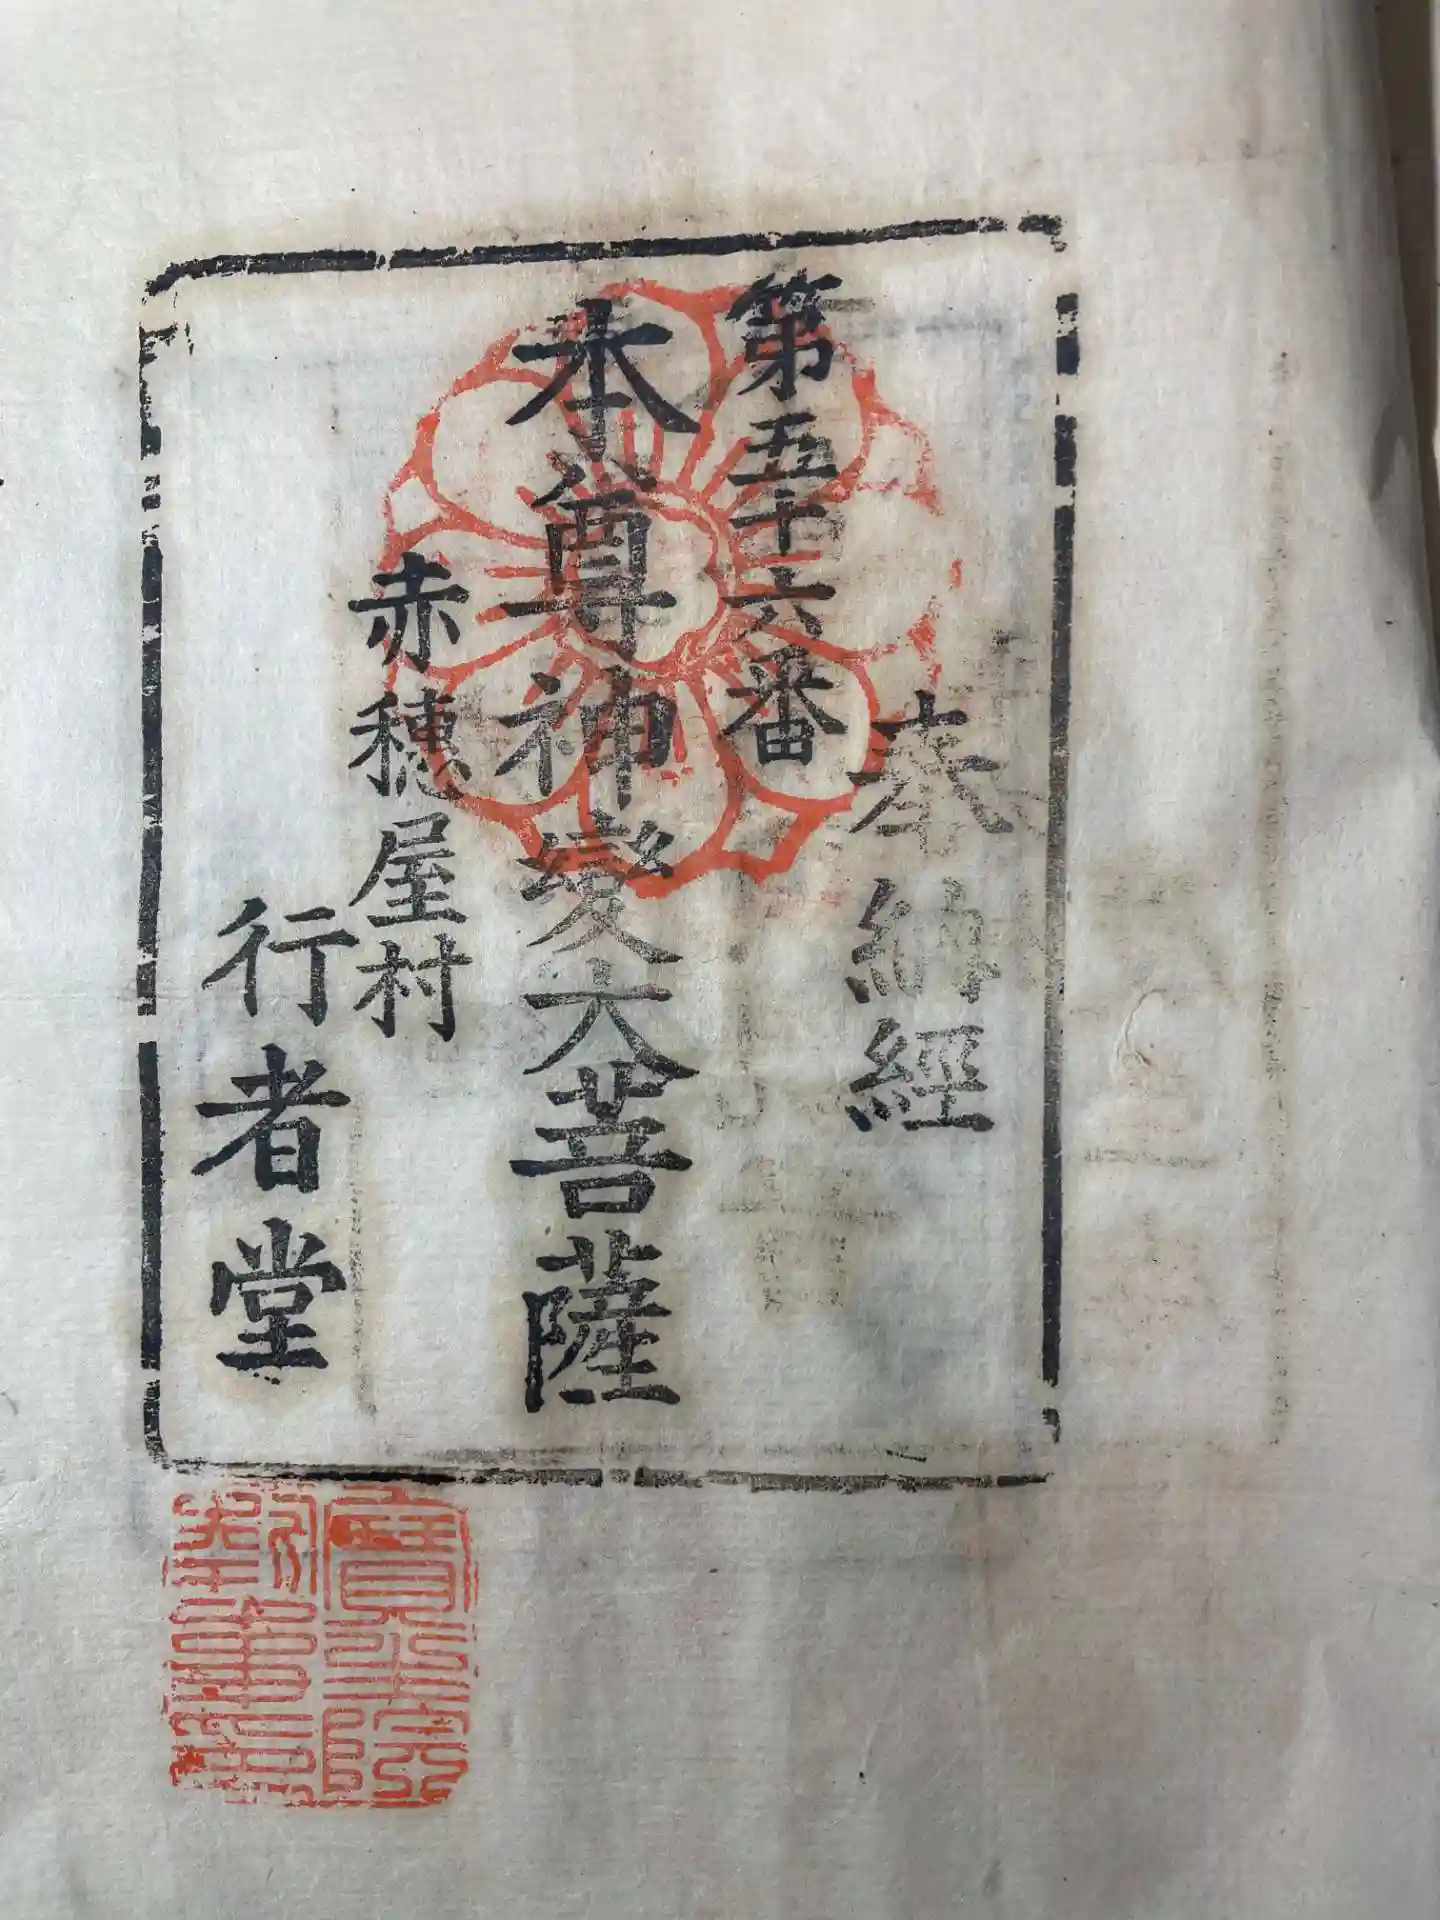 奉納經
第五十六番
本尊神變大菩薩
赤穗屋村
行者堂